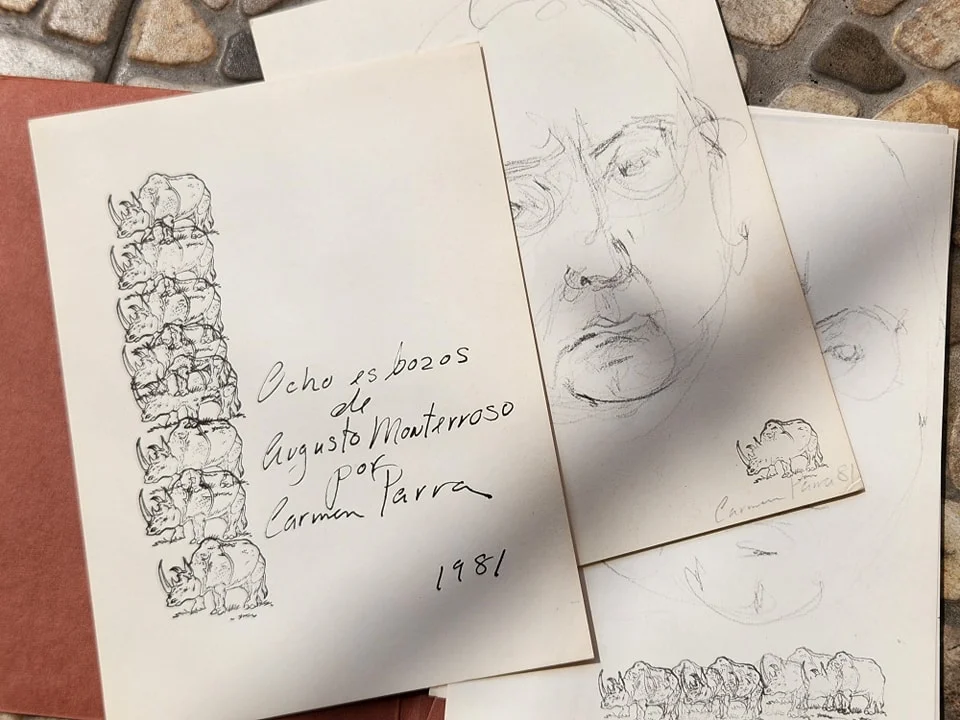 Ocho esbozos
de
Augusto Monterroso
por
Carmen Parra
1981
Carmen Parra 81